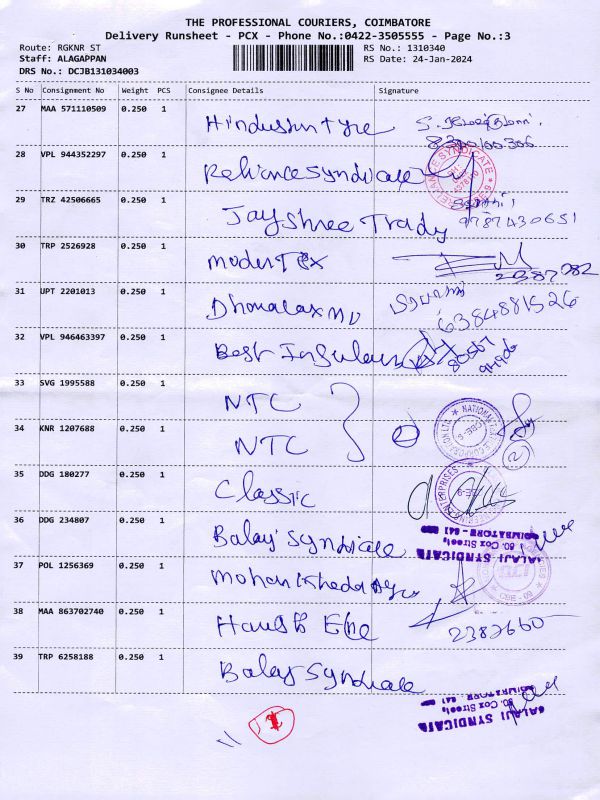 THE PROFESSIONAL COURIERS, COIMBATORE
Delivery Runsheet - PCX - Phone No.:0422-3505555 - Page No.:3
Route: RGKNR ST RS No.: 1310340
Staff: ALAGAPPAN RS Date: 24-Jan-2024
DRS No.: DCJB131034003
S No Consignment No Weight PCS Consignee Details Signature
27 MAA 571110509 0.250 1 Hindustan Tyre
28 VPL 944352297 0.250 1 Reliance Syndicate
29 TRZ 42506665 0.250 1 Jay Shree Trady 9787430651
30 TRP 2526928 0.250 1 Modern Tex 2387082
31 UPT 2201013 0.250 1 6384881526
32 VPL 946463397 0.250 1 Best
33 SVG 1995588 0.250 1 NTC
34 KNR 1207688 0.250 1 NTC 2
35 DDG 180277 0.250 1 Classic
36 DDG 234807 0.250 1 Balaji Syndicate
BALAJI SYNDICATE
80, Cox Street,
COIMBATORE - 641
37 POL 1256369 0.250 1 Mohan
CBE - 09
38 MAA 863702740 0.250 1 2382660
39 TRP 6258188 0.250 1 Balaji Syndicate
BALAJI SYNDICATE
80, Cox Street,
COIMBATORE - 641
1